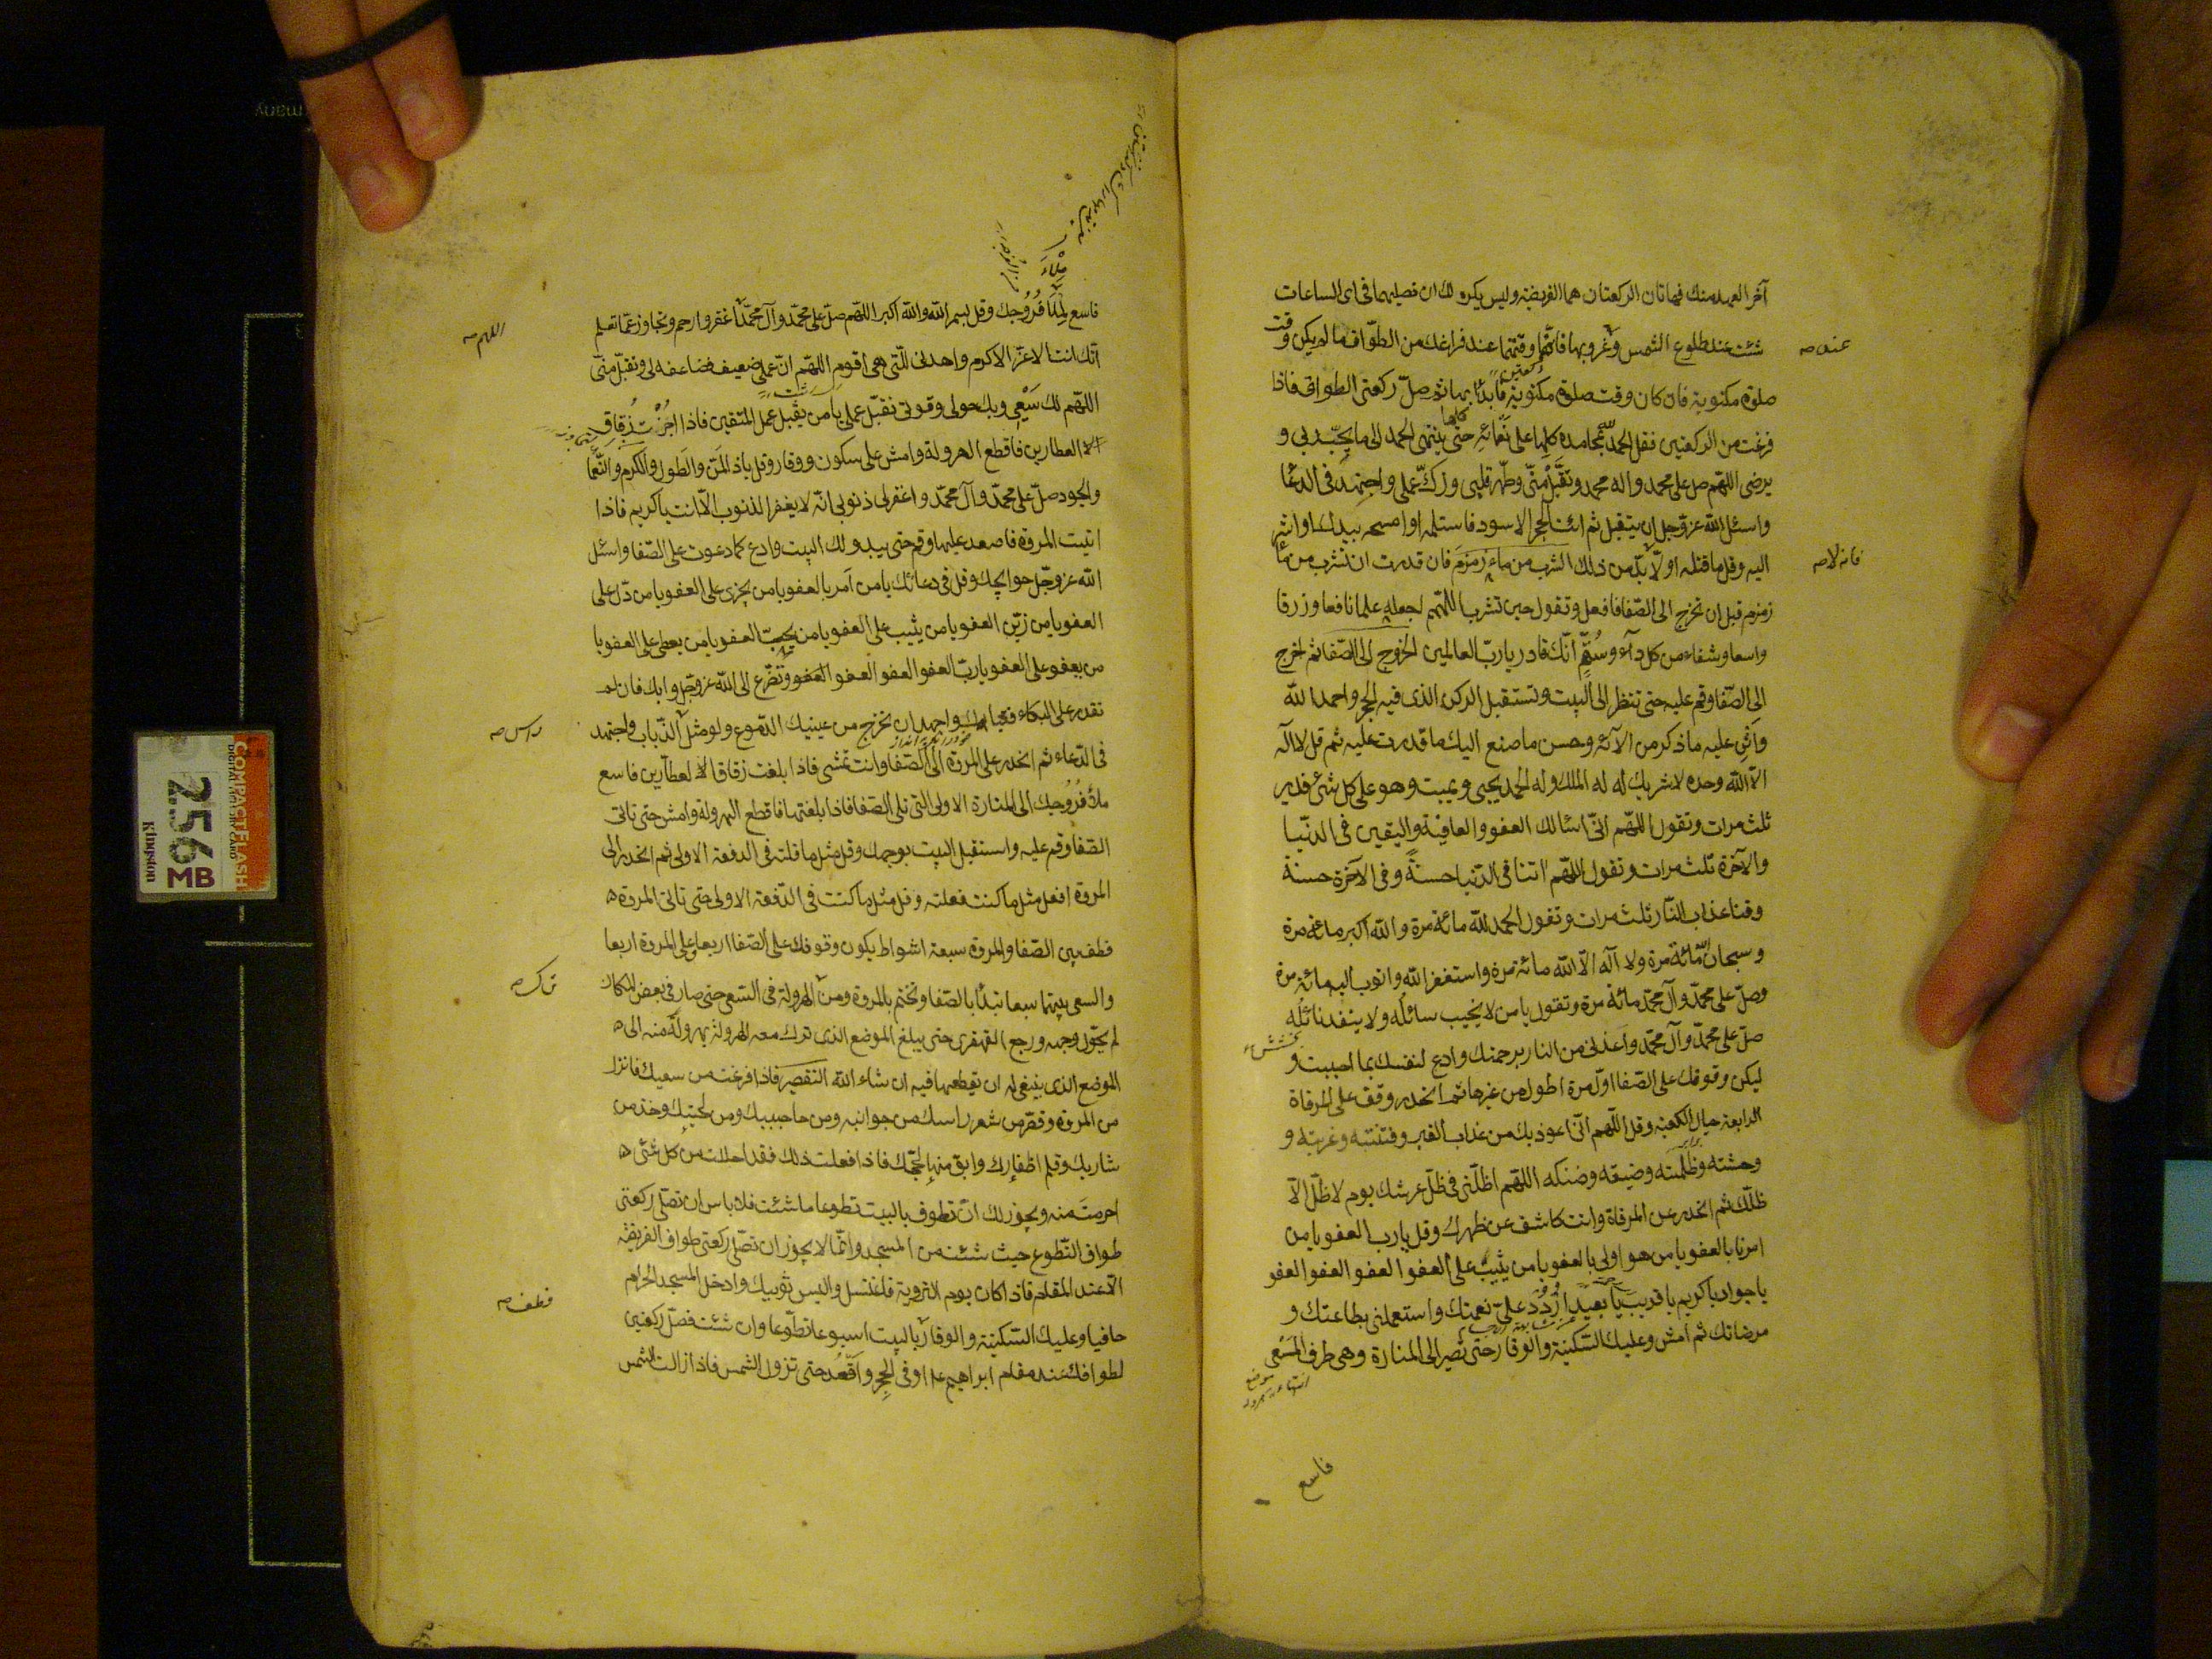 آخر العهد منك فهاتان الركعتان هما الفريضة وليس يكره لك ان تصليهما فى اى الساعات
شئت عند طلوع الشمس وغروبها فانما وقتهما عند فراغك من الطواف ما لم يكن وقت
صلوة مكتوبة فان كان وقت صلوة مكتوبة فابدأ بها ثم صل ركعتى الطواف فاذا
فرغت من الركعتين فقل الحمد لله بمحامده كلها على نعمائه كلها حتى ينتهى الحمد الى ما يحب ربى و
يرضى اللهم صل على محمد واله محمد وتقبل منى وطهر قلبى وزك عملى واجتهد فى الدعا
واسئل الله عز وجل ان يتقبل ثم ائت الحجر الاسود فاستلمه او امسحه بيدك او اشر
اليه وقل ما قتله اولا بد من ذلك الشرب من ماء زمزم فان قدرت ان تشرب من ماء
زمزم قبل ان تخرج الى الصفا فافعل وتقول حين تشرب اللهم اجعله علما نافعا ورزقا
واسعا وشفاء من كل داء وسقم انك قادر يا رب العالمين الخروج الى الصفا ثم اخرج
الى الصفا وقم عليه حتى تنظر الى البيت وتستقبل الركن الذى فيه الحجر واحمد الله
واثن عليه ما ذكر من الآئه وحسن ما صنع اليك ما قدرت عليه ثم قل لا اله
الا الله وحده لا شريك له له الملك وله الحمد يحيى ويميت وهو على كل شئ قدير
ثلث مرات وتقول اللهم انى اسئالك العفو والعافية واليقين فى الدنيا
والآخرة ثلث مرات وتقول اللهم اتنا فى الدنيا حسنة وفى الآخرة حسنة
وقنا عذاب النار ثلث مرات وتقول الحمد لله مائة مرة والله اكبر مائة مرة
و سبحان الله مائة مرة ولا اله الا الله مائة مرة واستغفر الله واتوب اليه مائة مرة
وصل على محمد وآل محمد مائة مرة وتقول يا من لا يخيب سائله ولا ينفد نائله
صل على محمد وآل محمد واعذنى من النار برحمتك وادع لنفسك بما احببت و
ليكن وقوفك على الصفا اول مرة اطول من غيرها ثم انحدر وقف على المرقاة
الرابعة حيال الكعبة وقل اللهم انى اعوذ بك من عذاب القبر وفتنته وغربته و
وحشته وظلمته وضيقه وضنكه اللهم اظلنى فى ظل عرشك يوم لا ظل الا
ظلك ثم انحدر عن المرقاة وانت كاشف عن ظهرك وقل يا رب العفو يا من
امرنا بالعفو يا من هو اولى بالعفو يا من يثيب على العفو العفو العفو العفو
يا جواد يا كريم يا قريب يا بعيد اردد على نعمتك واستعملنى بطاعتك و
مرضاتك ثم امش وعليك السكينة والوقار حتى تصير الى المنارة وهى طرف المسعى
عنده صح
فانه لا صح
بخشش
فاسع
ملاء
فاسع ملأ فروجك وقل بسم الله والله اكبر اللهم صل على محمد وآل محمد اغفر وارحم وتجاوز عما تعلم
انك انت الاعز الاكرم واهدنى للتى هى اقوم اللهم ان عملى ضعيف فضاعفه لى وتقبل منى
اللهم لك سعيى وبك حولى وقوتى تقبل عملى يا من يقبل عمل المتقين فاذا اجزت زقاق
العطارين فاقطع الهرولة وامش على سكون ووقار وقل يا ذا المن والطول والكرم والنعما
والجود صل على محمد وآل محمد واغفر لى ذنوبى انه لا يغفر الذنوب الا انت يا كريم فاذا
اتيت المروة فاصعد عليها وقم حتى يبدو لك البيت وادع كما دعوت على الصفا واسئل
الله عز وجل حوايجك وقل فى دعائك يا من امر بالعفو يا من يجزى على العفو يا من دل على
العفو يا من زين العفو يا من يثيب على العفو يا من يحب العفو يا من يعطى على العفو يا
من يعفو على العفو يا رب العفو العفو العفو العفو وتضرع الى الله عز وجل وابك فان لم
تقدر على البكاء فتباك واجهد ان تخرج من عينيك الدموع ولو مثل الذباب واجتهد
فى الدعاء ثم انحدر على المروة الى الصفا وانت تمشى فاذا بلغت زقاق العطارين فاسع
ملأ فروجك الى المنارة الاولى التى تلى الصفا فاذا بلغتها فاقطع الهرولة وامش حتى تاتى
الصفا وقم عليه واستقبل البيت بوجهك وقل مثل ما قلته فى الدفعة الاولى ثم انحدر الى
المروة افعل مثل ما كنت فعلته وقل مثل ما كنت فى الدفعة الاولى حتى تاتى المروة
فطف بين الصفا والمروة سبعة اشواط يكون وقوفك على الصفا اربعا وعلى المروة اربعا
والسعى بينهما سبعا تبدأ بالصفا وتختم بالمروة ومن الهرولة فى السعى حتى صار فى بعض المكان
لم يحول وجهه ورجع القهقرى حتى يبلغ الموضع الذى ترك معه الهرولة ثم يهرول منه الى
الموضع الذى ينبغى له ان يقطعها فيه ان شاء الله التقصير فاذا فرغت من سعيك فانزل
من المروة وقصر من شعر راسك من جوانبه ومن حاجبيك ومن لحيتك وخذ من
شاربك وقلم اظفارك وابق منها لحجك فاذا فعلت ذلك فقد احللت من كل شئ
احرمت منه ويجوز لك ان تطوف بالبيت تطوعا ما شئت فلا باس ان تصلى ركعتى
طواف التطوع حيث شئت من المسجد وانما لا يجوز ان تصلى ركعتى طواف الفريضة
الا عند المقام فاذا كان يوم التروية فاغتسل والبس ثوبيك وادخل المسجد الحرام
حافيا وعليك السكينة والوقار بالبيت اسبوعا تطوعا وان شئت فصل ركعتين
لطوافك عند مقام ابراهيم ع او فى الحجر واقعد حتى تزول الشمس فاذا زالت الشمس
اللهم صح
راس صح
ترك صح
فطف صح
COMPACT FLASH
DIGITAL MEMORY CARD
256
MB
Kingston